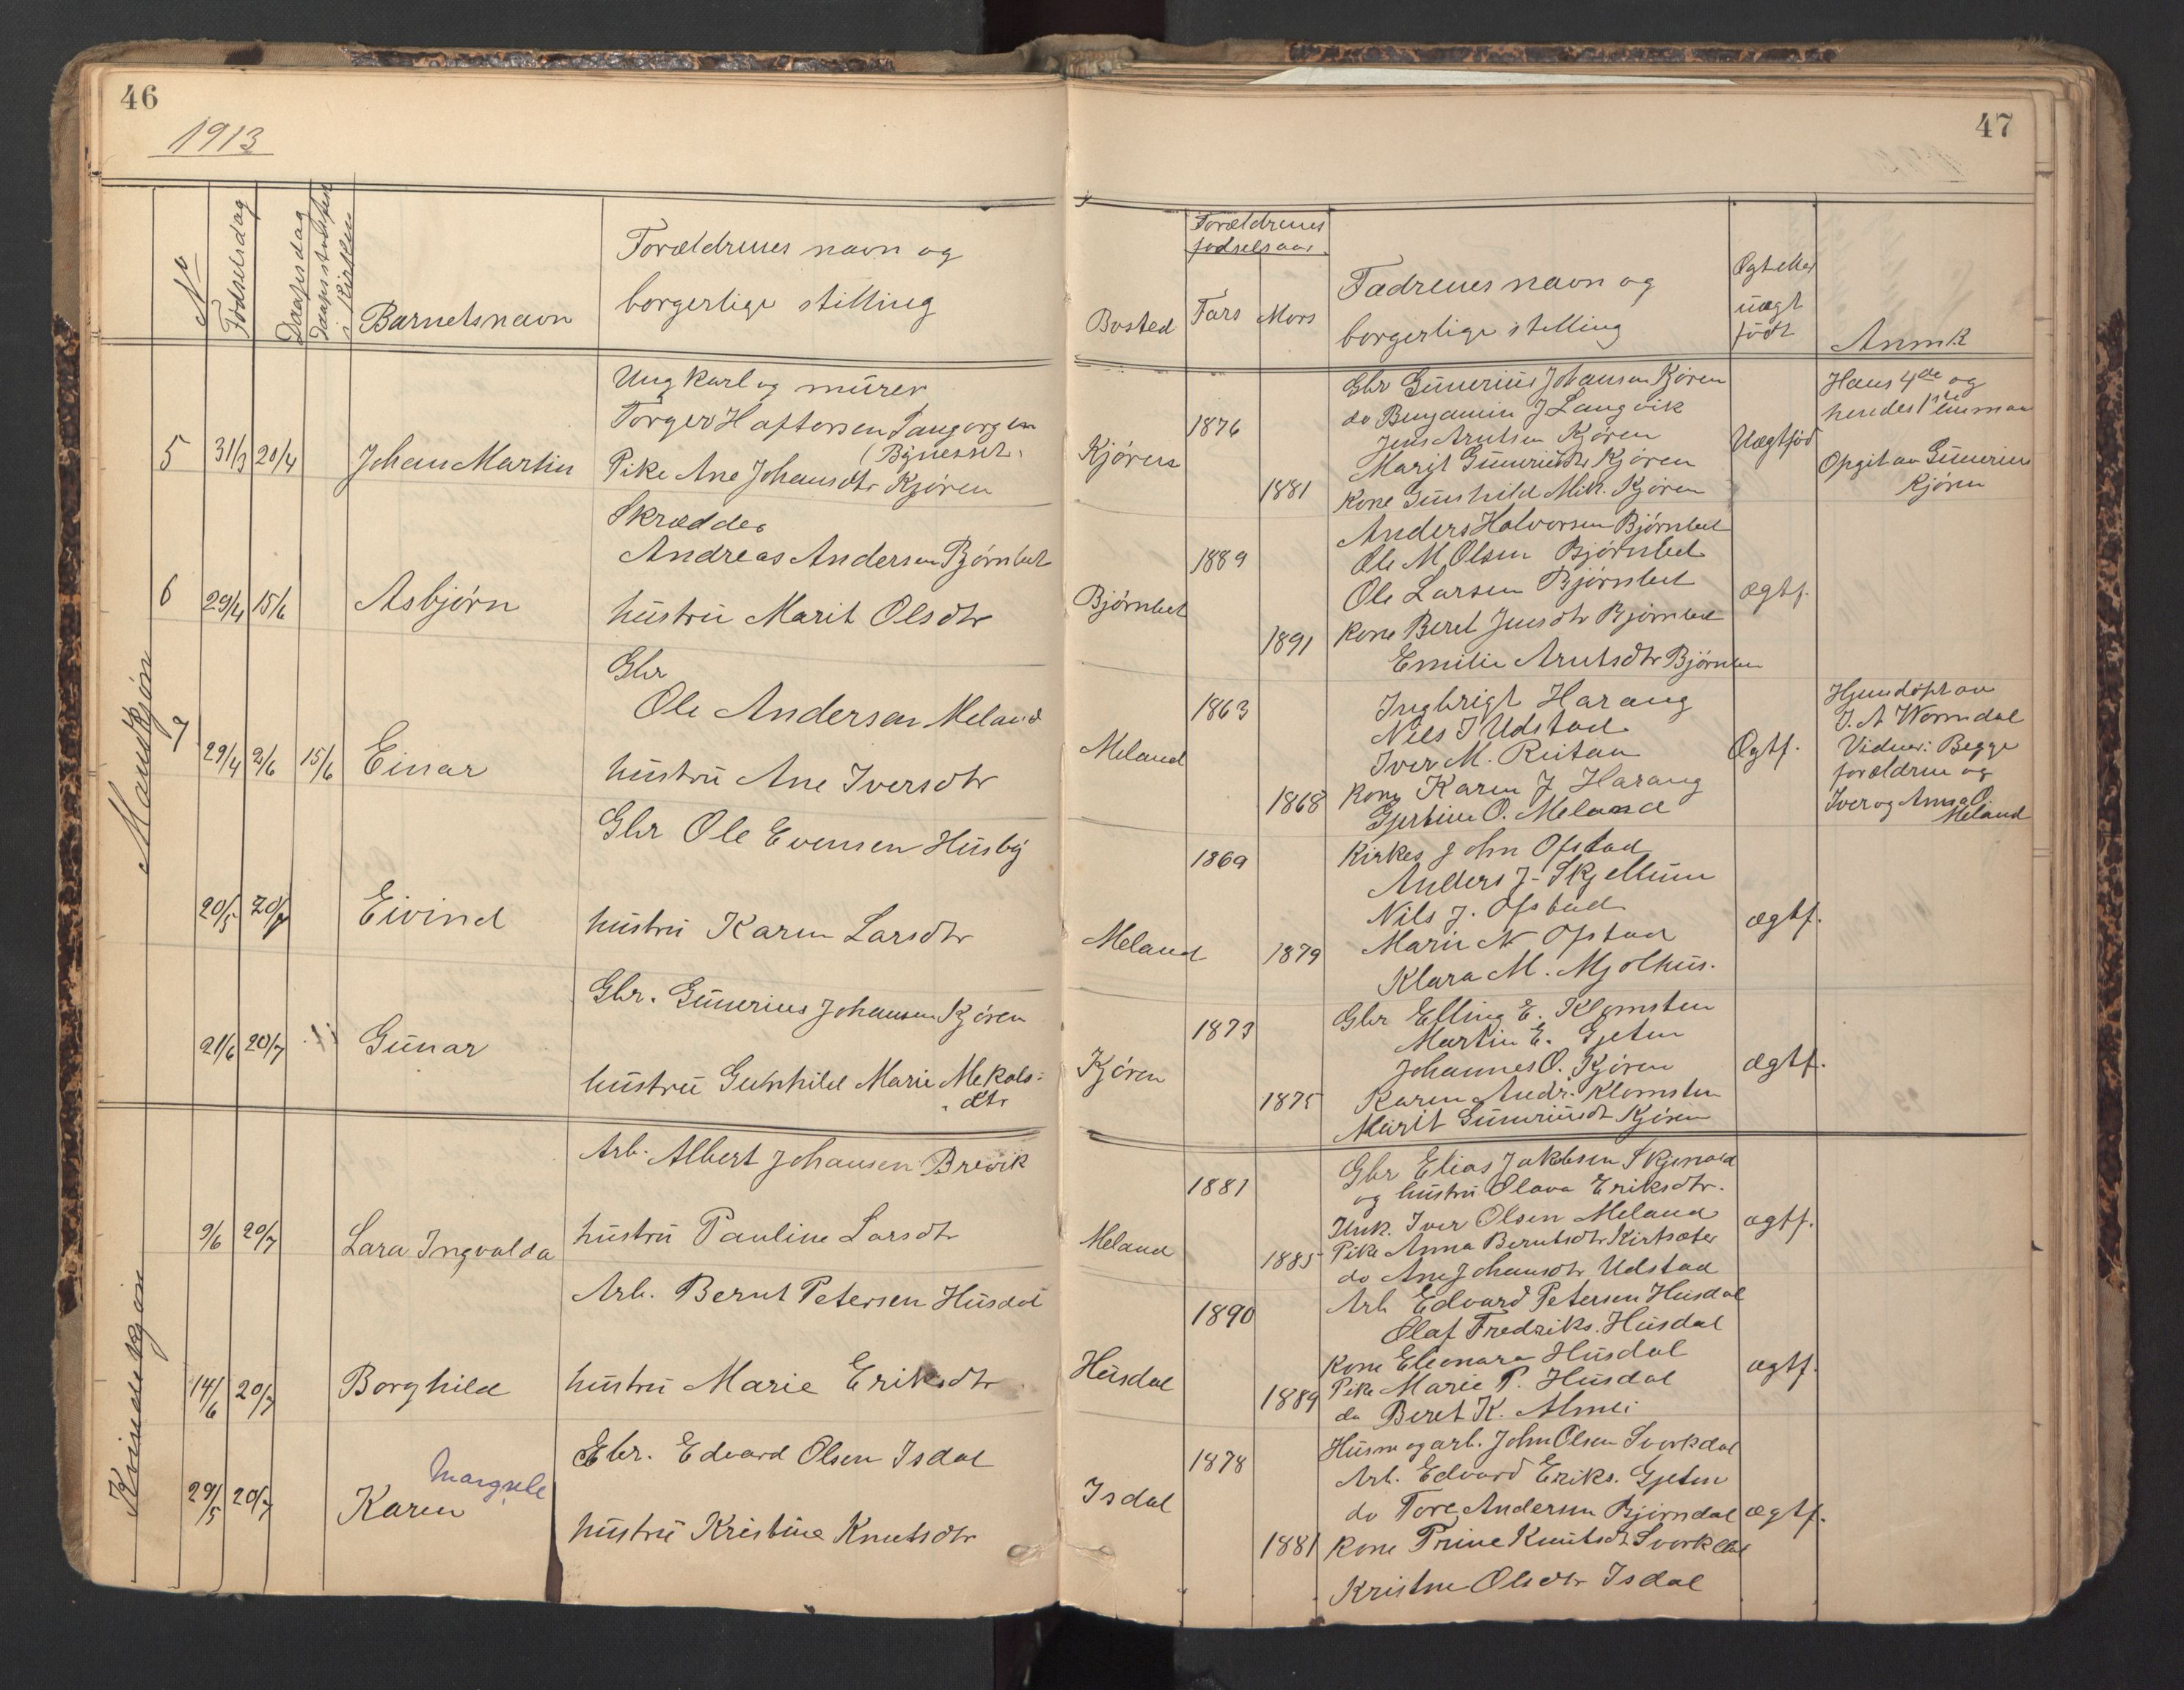 46
1913
No
Fødselsdag
Daapsdag
Daapsstadfest
i Kirken
Barnets navn
Forældrenes navn og
borgerlige stilling
Mandkjøn
5 31/3 20/4 Johan Martin
Ungkarl og murer
Torger Haftorsen
(Bynesset.
Pike Ane Johansdtr Kjøren
6 29/4 15/6 Asbjørn
Skrædder
Andreas Andersen Bjørnbet
hustru Marit Olsdtr
7 29/4 2/6 15/6 Einar
Gbr
Ole Andersen Meland
hustru Ane Iversdtr
20/5 20/7 Eivind
Gbr Ole Evensen Husby
hustru Karen Larsdtr
21/6 20/7 Gunar
Gbr. Gunerius Johansen Kjøren
hustru Gunhild Marie Mekals-
dtr
Kvindekjøn
9/6 20/7 Lara Ingvalda
Arb. Albert Johansen Brevik
hustru Pauline Larsdtr
14/6 20/7 Borghild
Arb. Bernt Petersen Husdal
hustru Marie Eriksdtr
29/5 20/7 Karen
Gbr. Edvard Olsen Isdal
hustru Kristine Knutsdtr
47
Bosted
Forældrenes
fødselsaar
Fars
Mors
Fadrenes navn og
borgerlige stilling
Ægt eller
uægt
født
Anmk
Kjøren
1876
1881
Gbr Gunerius Johansen Kjøren
do Benjamin J Langvik
Jens Arntsen Kjøren
Marit Guneriusdtr Kjøren
Kone Gunhild Mik. Kjøren
Uægtfød
Hans 4de og
hendes 1ste
Opgit av Gunerius
Kjøren
Bjørnbet
1889
1891
Anders Halvorsen Bjørnbet
Ole M Olsen Bjørnbet
Ole Larsen Bjørnbet
Kone Beret Jensdtr Bjørnbet
Emilie Arntsdtr Bjørnbet
ægtf.
Meland
1863
1868
Ingbrigt Harang
Nils J Udstad
Iver M. Ruitan
Kone Karen J Harang
Gjertine O. Meland
Ægtf.
Hjemdøpt av
J. A Wormdal
Vidner: Begge
forældrene og
Iver og Anna O.
Meland
Meland
1869
1879
Kirkes John Ofstad
Anders J. Skjellum
Nils J. Ofstad
Marie N Ofstad
Klara M. Mjolhus.
ægtf.
Kjøren
1873
1875
Gbr Elling E. Klomsten
Martin E. Gjeten
Johannes O. Kjøren
Karen Andr. Klomsten
Marit Guneriusdt Kjøren
ægtf.
Meland
1881
1885
Gbr Elias Jakobsen Skjenald
og hustru Olava Eriksdtr.
Unk. Iver Olsen Meland
Pike Anna Berntsdtr Kirksæter
do Ane Johansdtr Udstad
ægtf.
Husdal
1890
1889
Arb Edvard Petersen Husdal
Olaf Fredriks. Husdal
Kone Eleonara Husdal
Pike Marie P. Husdal
do Beret K. Almli
ægtf.
Isdal
1878
1881
Husm og arb. John Olsen Svorkdal
Arb. Edvard Eriks. Gjeten
do Tore Andersen Bjørndal
Kone Trine Knutsdt Svorkdal
Kristine Olsdtr Isdal
ægtf.